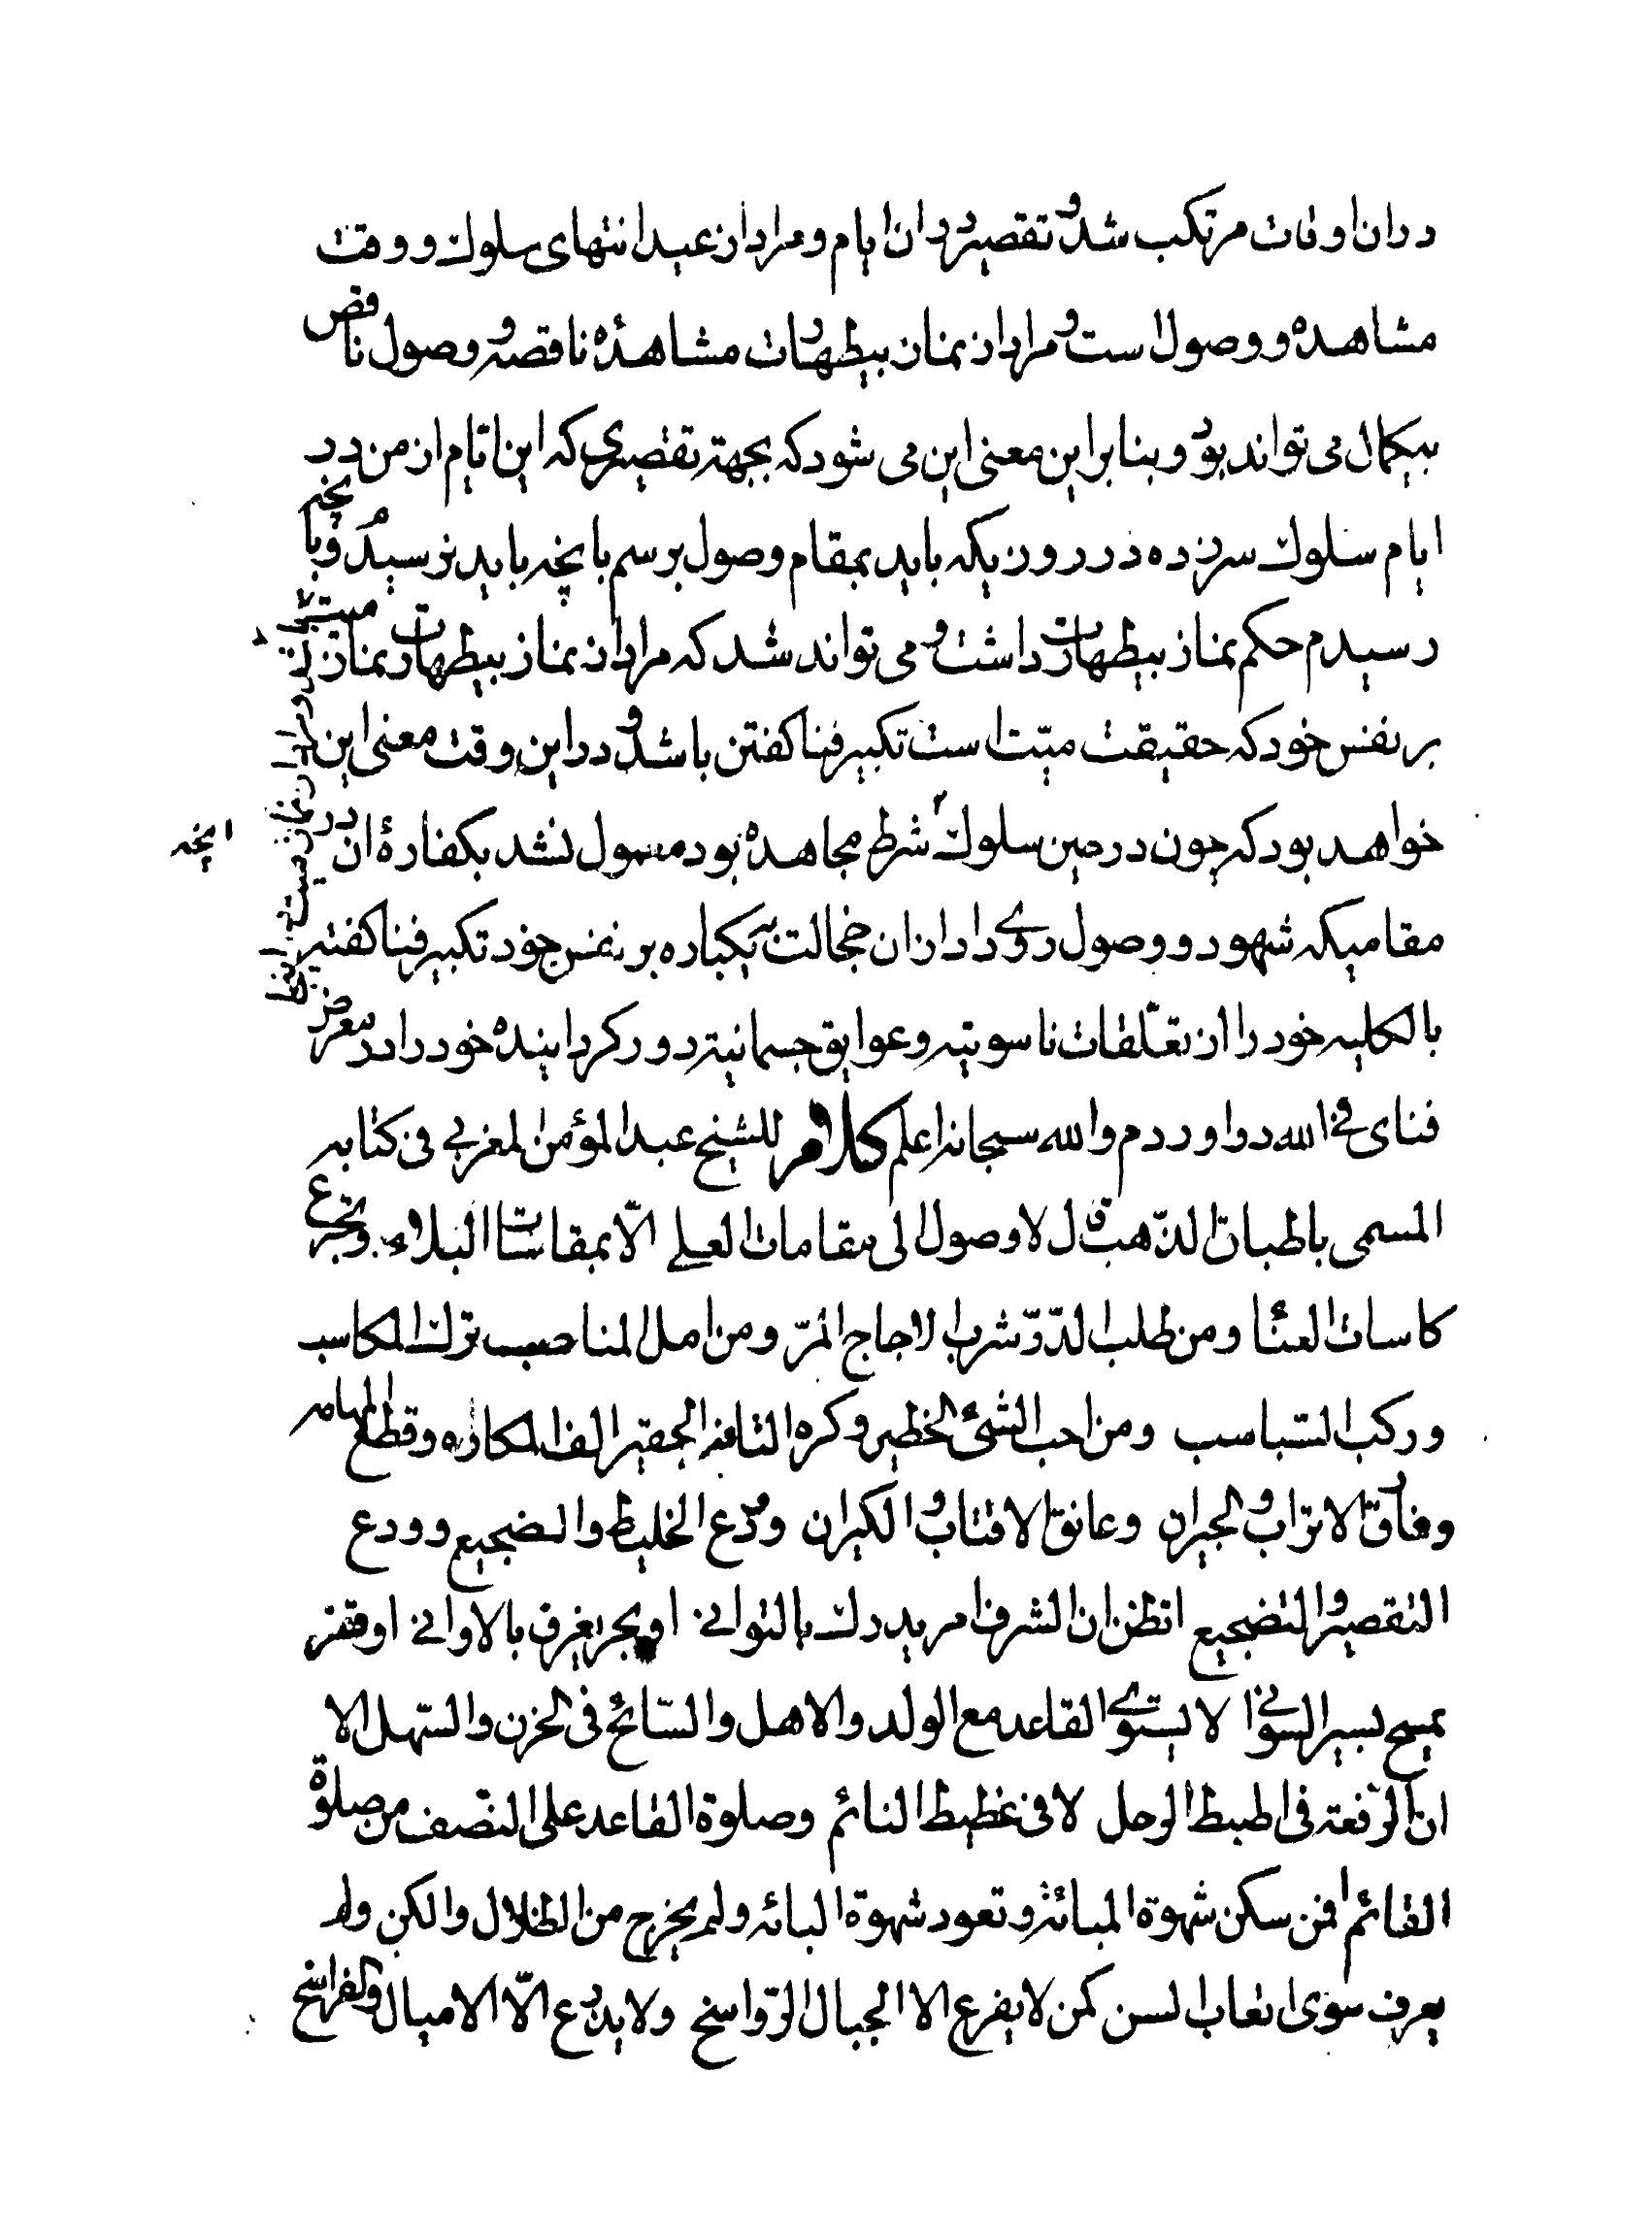 در ان اوقات مرتکب شده و تقصیر در ان ایام و مراد از عید انتهای سلوک و وقت
مشاهده و وصول است و مراد از نماز بیطهارت مشاهدۀ ناقصه و وصول ناقص
بیکمال می تواند بود و بنا براین معنی این می شود که بجهة تقصیری که این اتام از من در
ایام سلوک سرزده در روزیکه باید بمقام وصول برسم بانچه باید نرسیدم و بانچه
رسیدم حکم نماز بیطهارت داشت و می تواند شد که مراد از نماز بیطهارت نماز میت
بر نفس خود که حقیقت میّت است تکبیر فنا کفتن باشد و در این وقت معنی این
خواهد بود که چون در حین سلوک شرط مجاهده بود مبذول نشد بکفارۀ ان در
انچه
مقامیکه شهود و وصول روی داد از ان خجالت بیکباره بر نفس خود تکبیر فنا کفته
بالکلیه خود را از تعلّقات ناسوتیه و عوایق جسمانیة دور کردانیده خود را در معرض
فنای فی الله در اوردم والله سبحانه اعلم کلام للشیخ عبد المؤمن المغربی فی کتابه
المسمی باطباق الذّهب قال لا وصول الی مقامات العلی الّا بمقاسات البلاء و تجرع
کاسات العنآ و من طلب الدّرّ شرب الاجاج المرّ و من امل المناصب ترک المکاسب
و رکب السّباسب و من احب الشئ الخطیر و کره التافه الحقیر الف المکاره و قطع المهامه
و فارق الاتراب و الجیران و عانق الاقتاب و الکیران و ودّع الخلیط و الضجیع و ودع
التقصیر و التضجیع اتظن ان الشرف امر یدرک بالتوانی او بحر یغرف بالاوانی او قفز
یمسح بسیر السّوانی لا یستوی القاعد مع الولد و الاهل و السّائح فی الحزن و السّهل الا
ان الرّفعة فی اطیط الرحل لا فی غطیط النائم و صلوة القاعد علی النّصف من صلوة
القائم افمن سکن شهوة المبائة و تعود شهوة البائه و لم یخرج من الظلال و الکن و لم
یعرف سوی اتعاب السن کمن لا یفرع الا الجبال الرّواسخ و لا یدرع الّا الامیال و الفراسخ